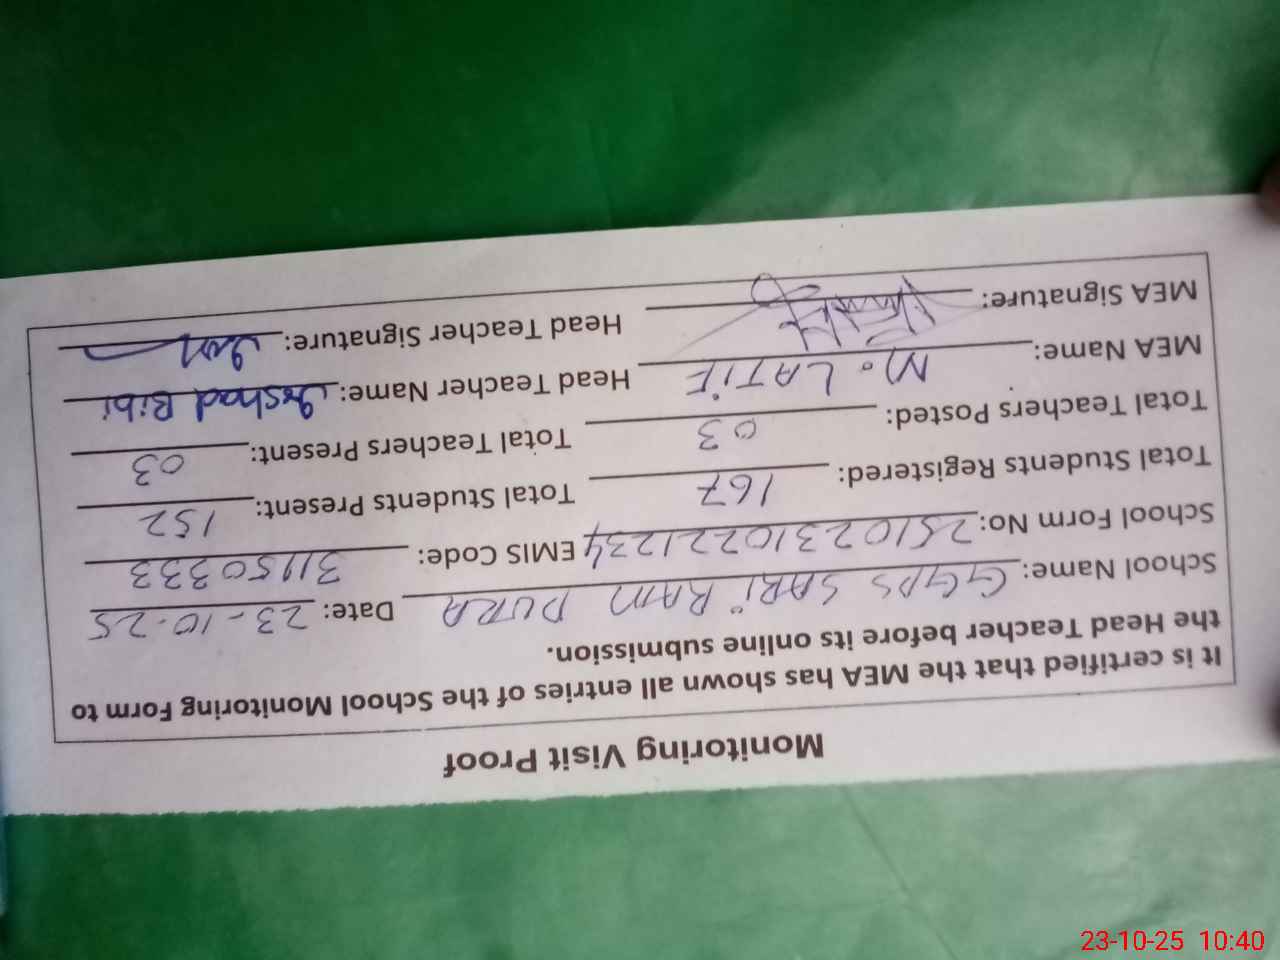 Monitoring Visit Proof
It is certified that the MEA has shown all entries of the School Monitoring Form to
the Head Teacher before its online submission.
School Name: GGPS SARI RAM PURA Date: 23-10-25
School Form No: 25102310221234 EMIS Code: 31150333
Total Students Registered: 167 Total Students Present: 152
Total Teachers Posted: 03 Total Teachers Present: 03
MEA Name: M. LATIF Head Teacher Name: Irshad Bibi
MEA Signature: Head Teacher Signature:
23-10-25 10:40